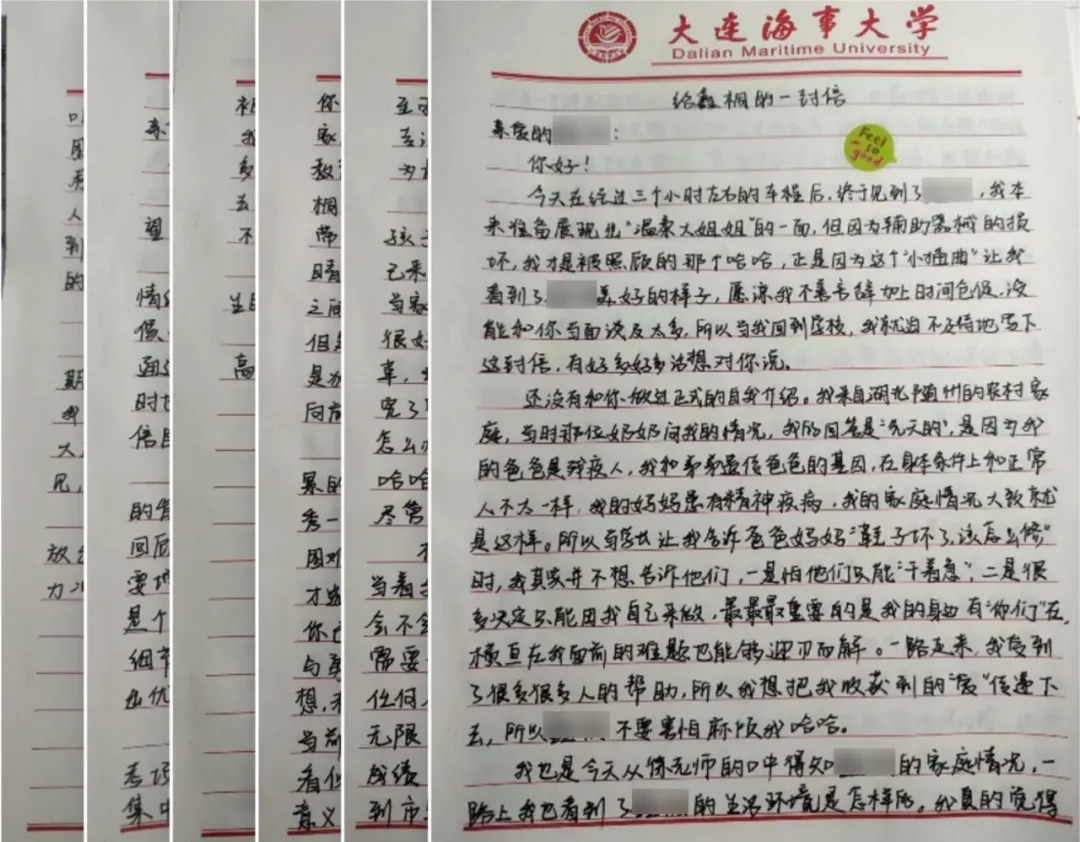 人
到
的
期
我
大
见,
放
力
望
情绪
假
时
信
的
回
要
是个
细节
出优
考
集中
我
多
去
不
高
你
家
教
桐
常
之间
但
是
向前
累的
秀一
困难
才
你
与
想,
当前
看似
意义
至
为
孩子
己来
当家
很好
章,
完了
怎么
哈哈
尽管
当着
会不会
需要
任何
无限
成绩
到市
大连海事大学
Dalian Maritime University
给鑫桐的一封信
亲爱的:
Feel
so
good
你好!
今天在经过三个小时左右的车程后,终于见到了,我本
来准备展现出“温柔大姐姐”的一面,但因为辅助器械的损
坏,我才是被照顾的那个哈哈,正是因为这个“小插曲”让我
看到了美好的样子,愿谅我不善言辞加上时间仓促,没
能和你当面谈及太多,所以当我回到学校,我就迫不及待地写下
这封信,有好多好多话想对你说。
还没有和你做过正式的自我介绍。我来自湖北随州的农村家
庭,当时那位奶奶问我的情况,我的回答是“先天的”,是因为我
的爸爸是残疾人,我和弟弟遗传爸爸的基因,在身体条件上和正常
人不太一样,我的妈妈患有精神疾病,我的家庭情况大致就
是这样。所以当你让我告诉爸爸妈妈“鞋子坏了,该怎么修”
时,我其实并不想告诉他们,一是怕他们只能“干着急”,二是很
多决定只能由我自己来做,最最最重要的是我的身边有“你们”在,
横亘在我面前的难题也能够迎刃而解。一路走来,我受到
了很多很多人的帮助,所以我想把我收获到的“爱”传递下
去,所以不要害怕麻烦我哈哈。
我也是今天从徐老师的口中得知的家庭情况,一
路上我也看到了的生活环境是怎样的。我真的觉得